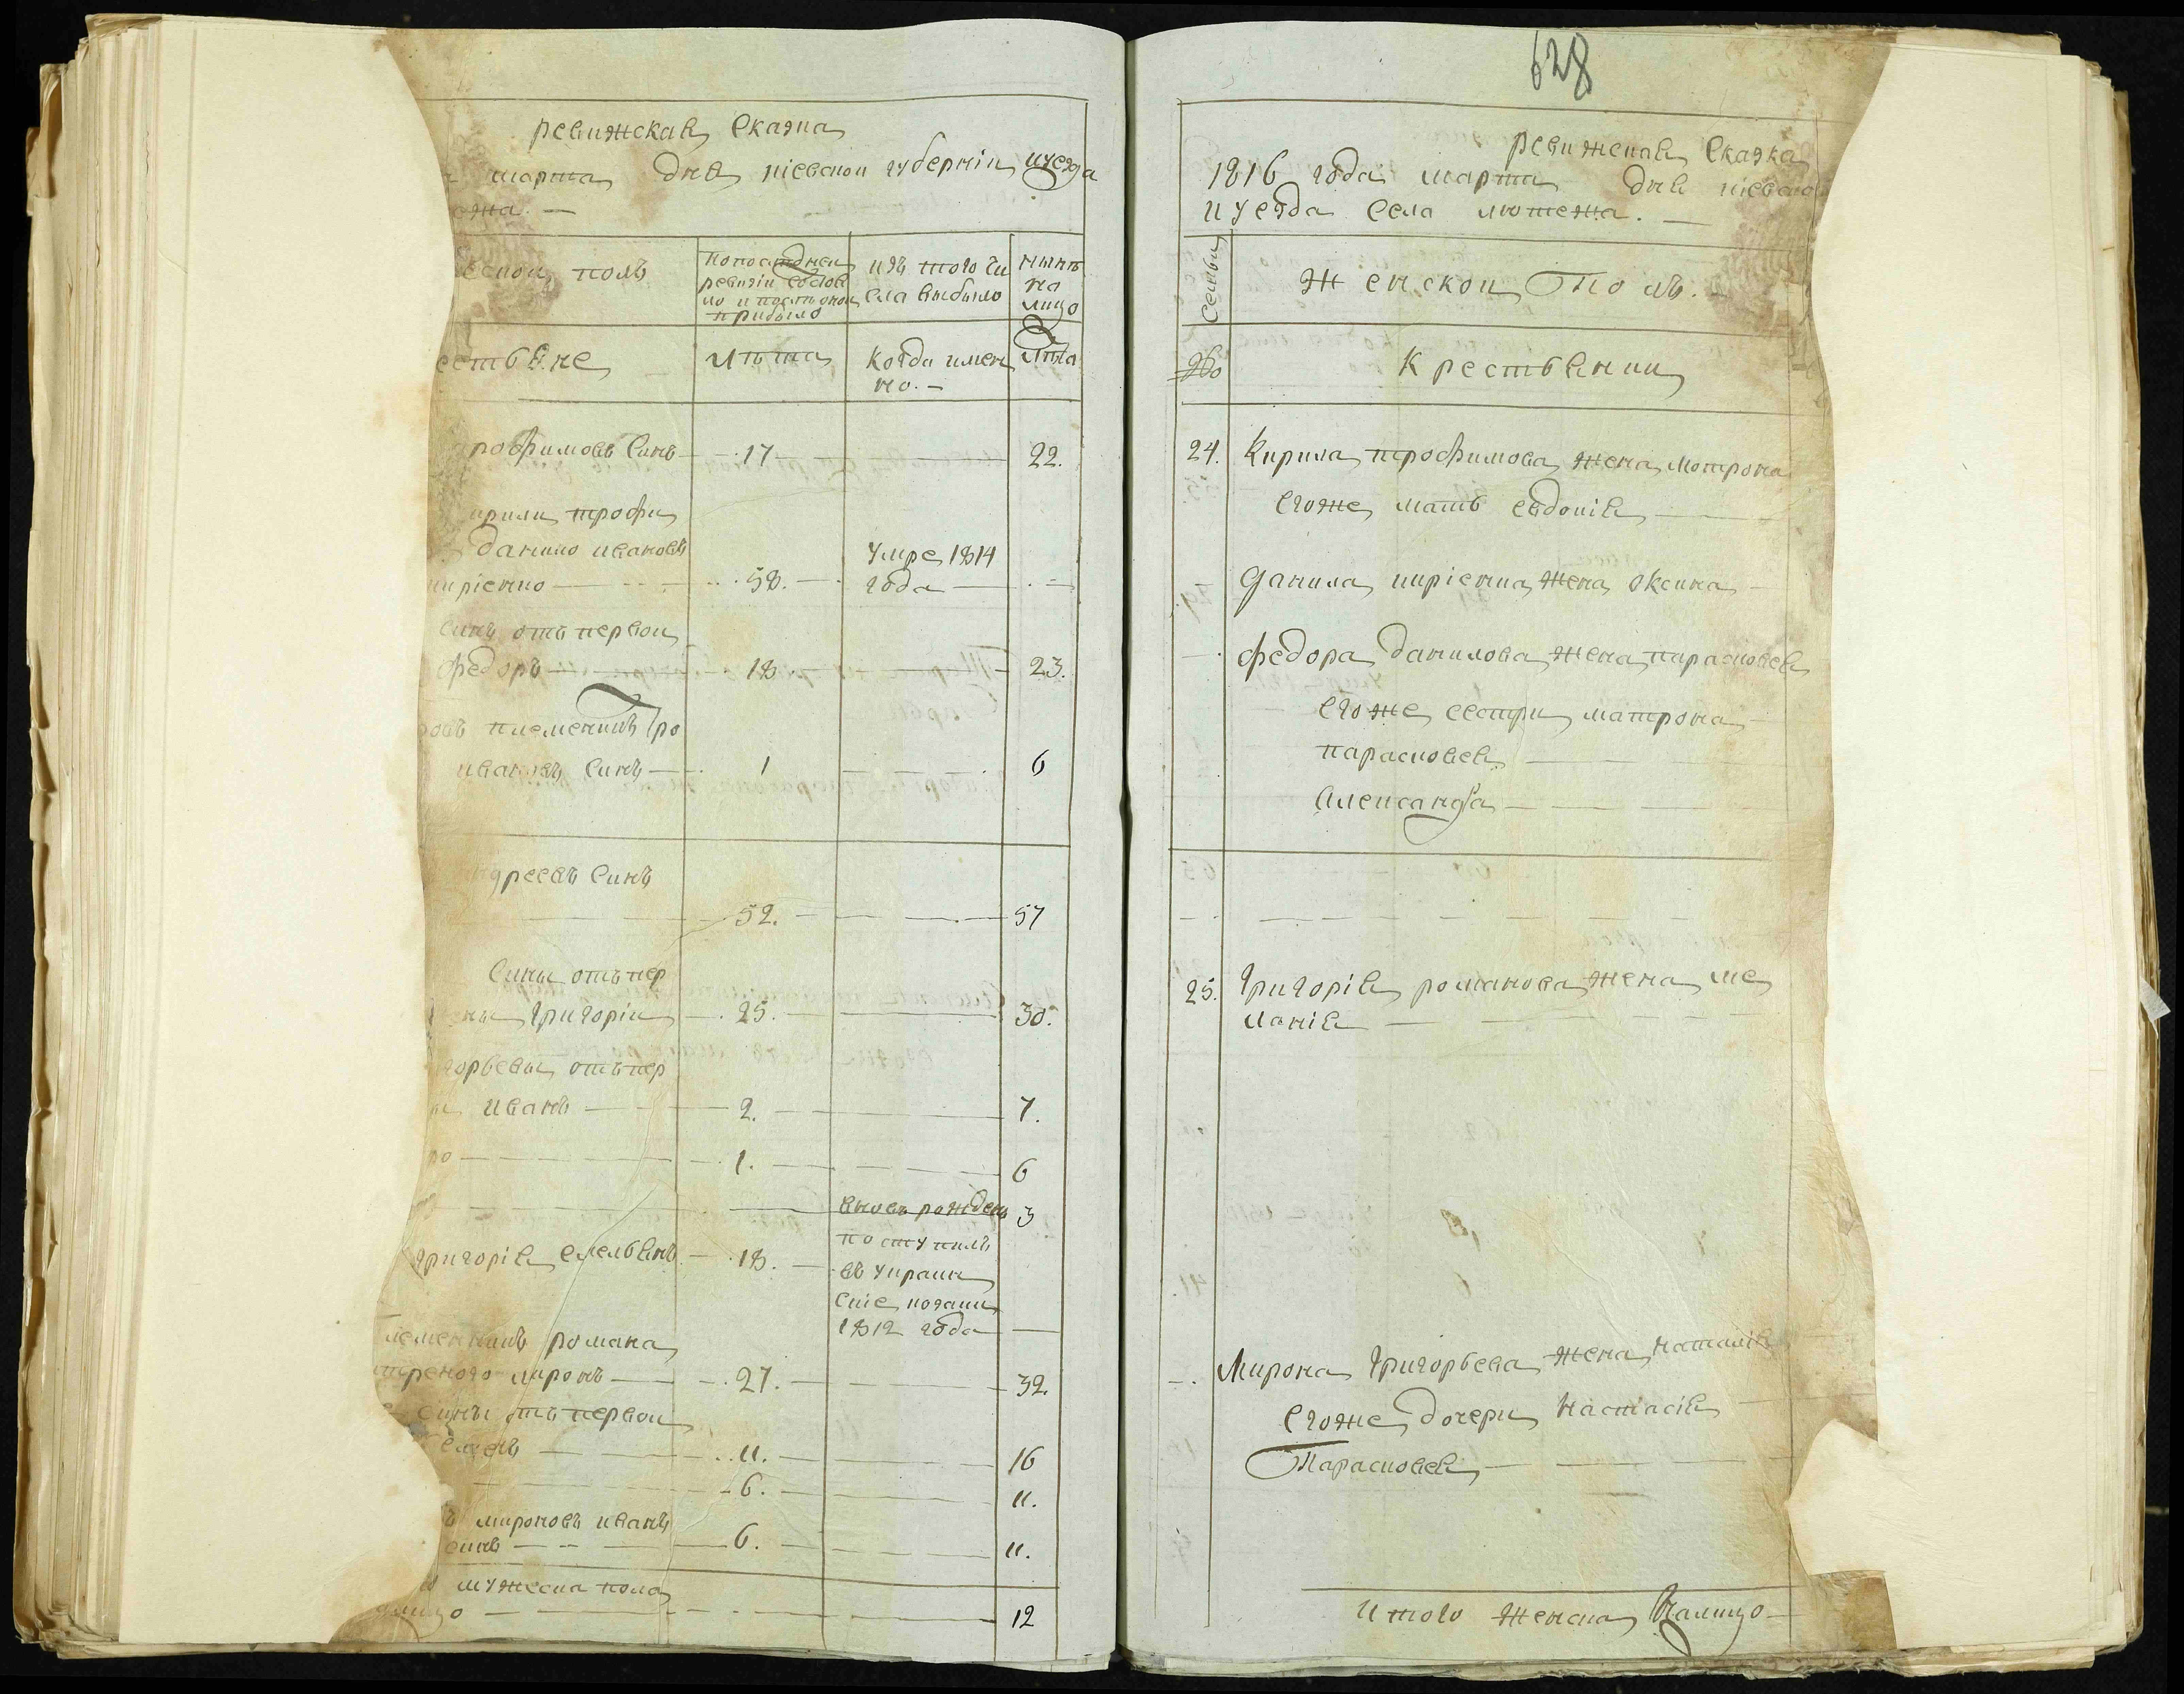 ревижская Сказка
марта дня киевской губернии и уезда
ежа. —
еской полъ
по последней
ревизіи состоя
ло и после оной
прибыло
изъ того чи
сла выбыло
нынѣ
на
лицо
естьяне
лѣта
Когда имен
но. —
лѣта
рофимовъ Синъ — 17 — 22.
ирили трофи
данило ивановъ
киріенко — 58. —
умре 1814
года —
синъ отъ первои
федоръ — 18 — 23.
ровъ племеникъ гро
ивановъ Синъ — 1 — 6
ндреевъ Синъ
— 52. — 57
Сины отъ пер
ны Григоріи — 25. — 30.
горьевы отъ пер
Иванъ — 2. — 7.
ро — 1. — 6
— вновь рожденъ 3
Григорія Емельянъ — 18. —
поступилъ
въ украин
скіе козаки
1812 года —
леменникъ романа
миронъ — 27. — 32.
сины отъ первои
— 11. — 16
— 6. — 11.
ъ мироновъ иванъ
синъ — 6. — 11.
о мужеска пола
лицо — 12
628
Ревижская Сказка
1816 года марта дня киевско
и уезда села лютежа. —
Семьи
Женской Полъ. —
Крестьянки
24. Кирила трофимова жена мотрона
Егоже мать евдокія —
Данила киріенка жена оксина —
федора данилова жена парасковея
Егоже сестри матрона —
парасковея —
Александра —
25. Григорія романова жена ме
ланія —
Мирона Григорьева жена наталія
Егоже дочери Настасія —
Парасковея —
Итого женска Налицо —